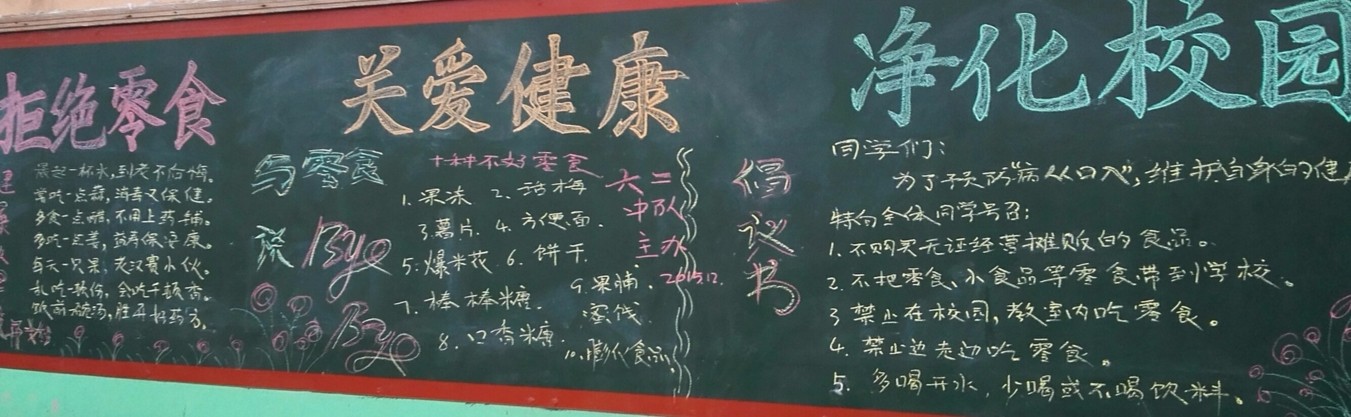 拒绝零食
晨起一杯水,到老不后悔。
常吃一点蒜,消毒又保健。
多食一点醋,不用上药铺。
多吃一点姜,益寿保安康。
每天一只果,老汉赛小伙。
乱吃一顿伤,会吃千顿香。
饭前一碗汤,胜开好药方。
关爱健康
与零食
说Bye
Bye
十种不好零食
1.果冻 2.话梅
3.薯片 4.方便面.
5.爆米花 6.饼干.
7.棒棒糖.
8.口香糖.
9.果脯.
蜜饯
10.膨化食品
六二
中队
主办
2015.12.
净化校园
倡议书
同学们:
为了预防"病从口入",维护自身的健
特向全体同学号召:
1.不购买无证经营摊贩的食品。
2.不把零食、小食品等零食带到学校。
3 禁止在校园,教室内吃零食。
4.禁止边走边吃零食。
5.多喝开水,少喝或不喝饮料。